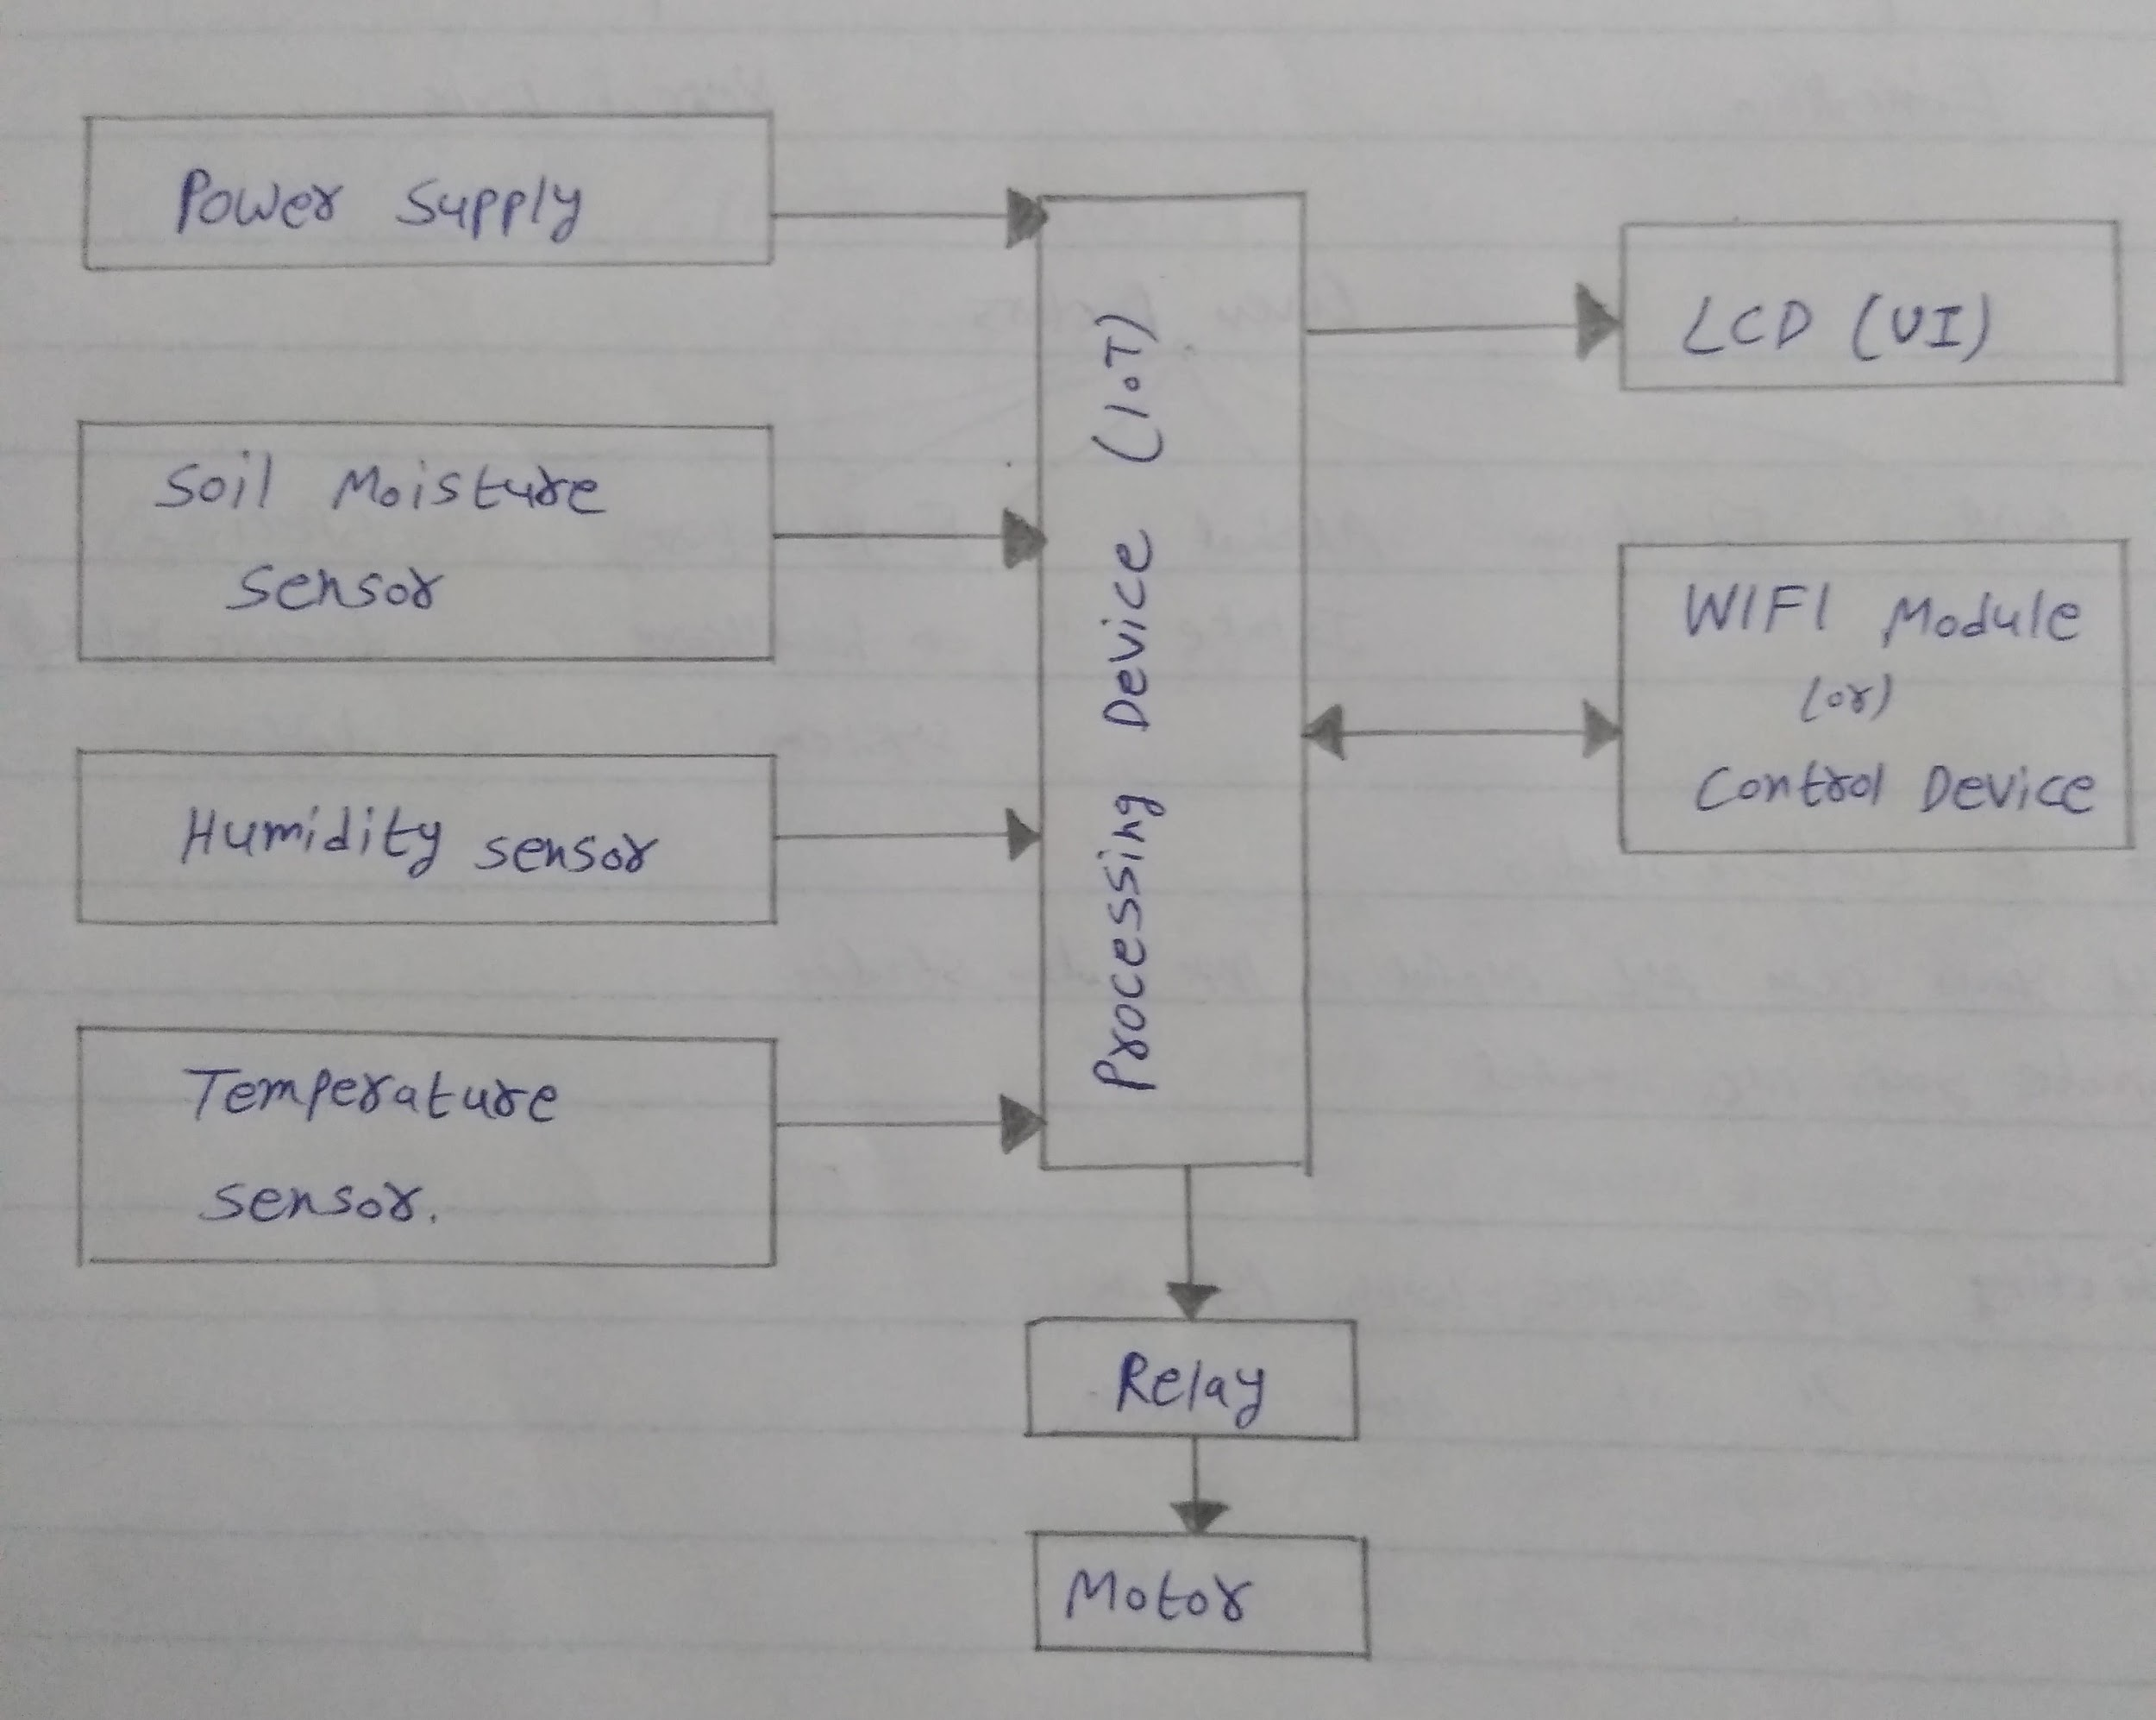 Power Supply
Soil Moisture
Sensor
Humidity sensor
Temperature
sensor.
Processing Device (IoT)
LCD (UI)
WIFI Module
(or)
Control Device
Relay
Motor